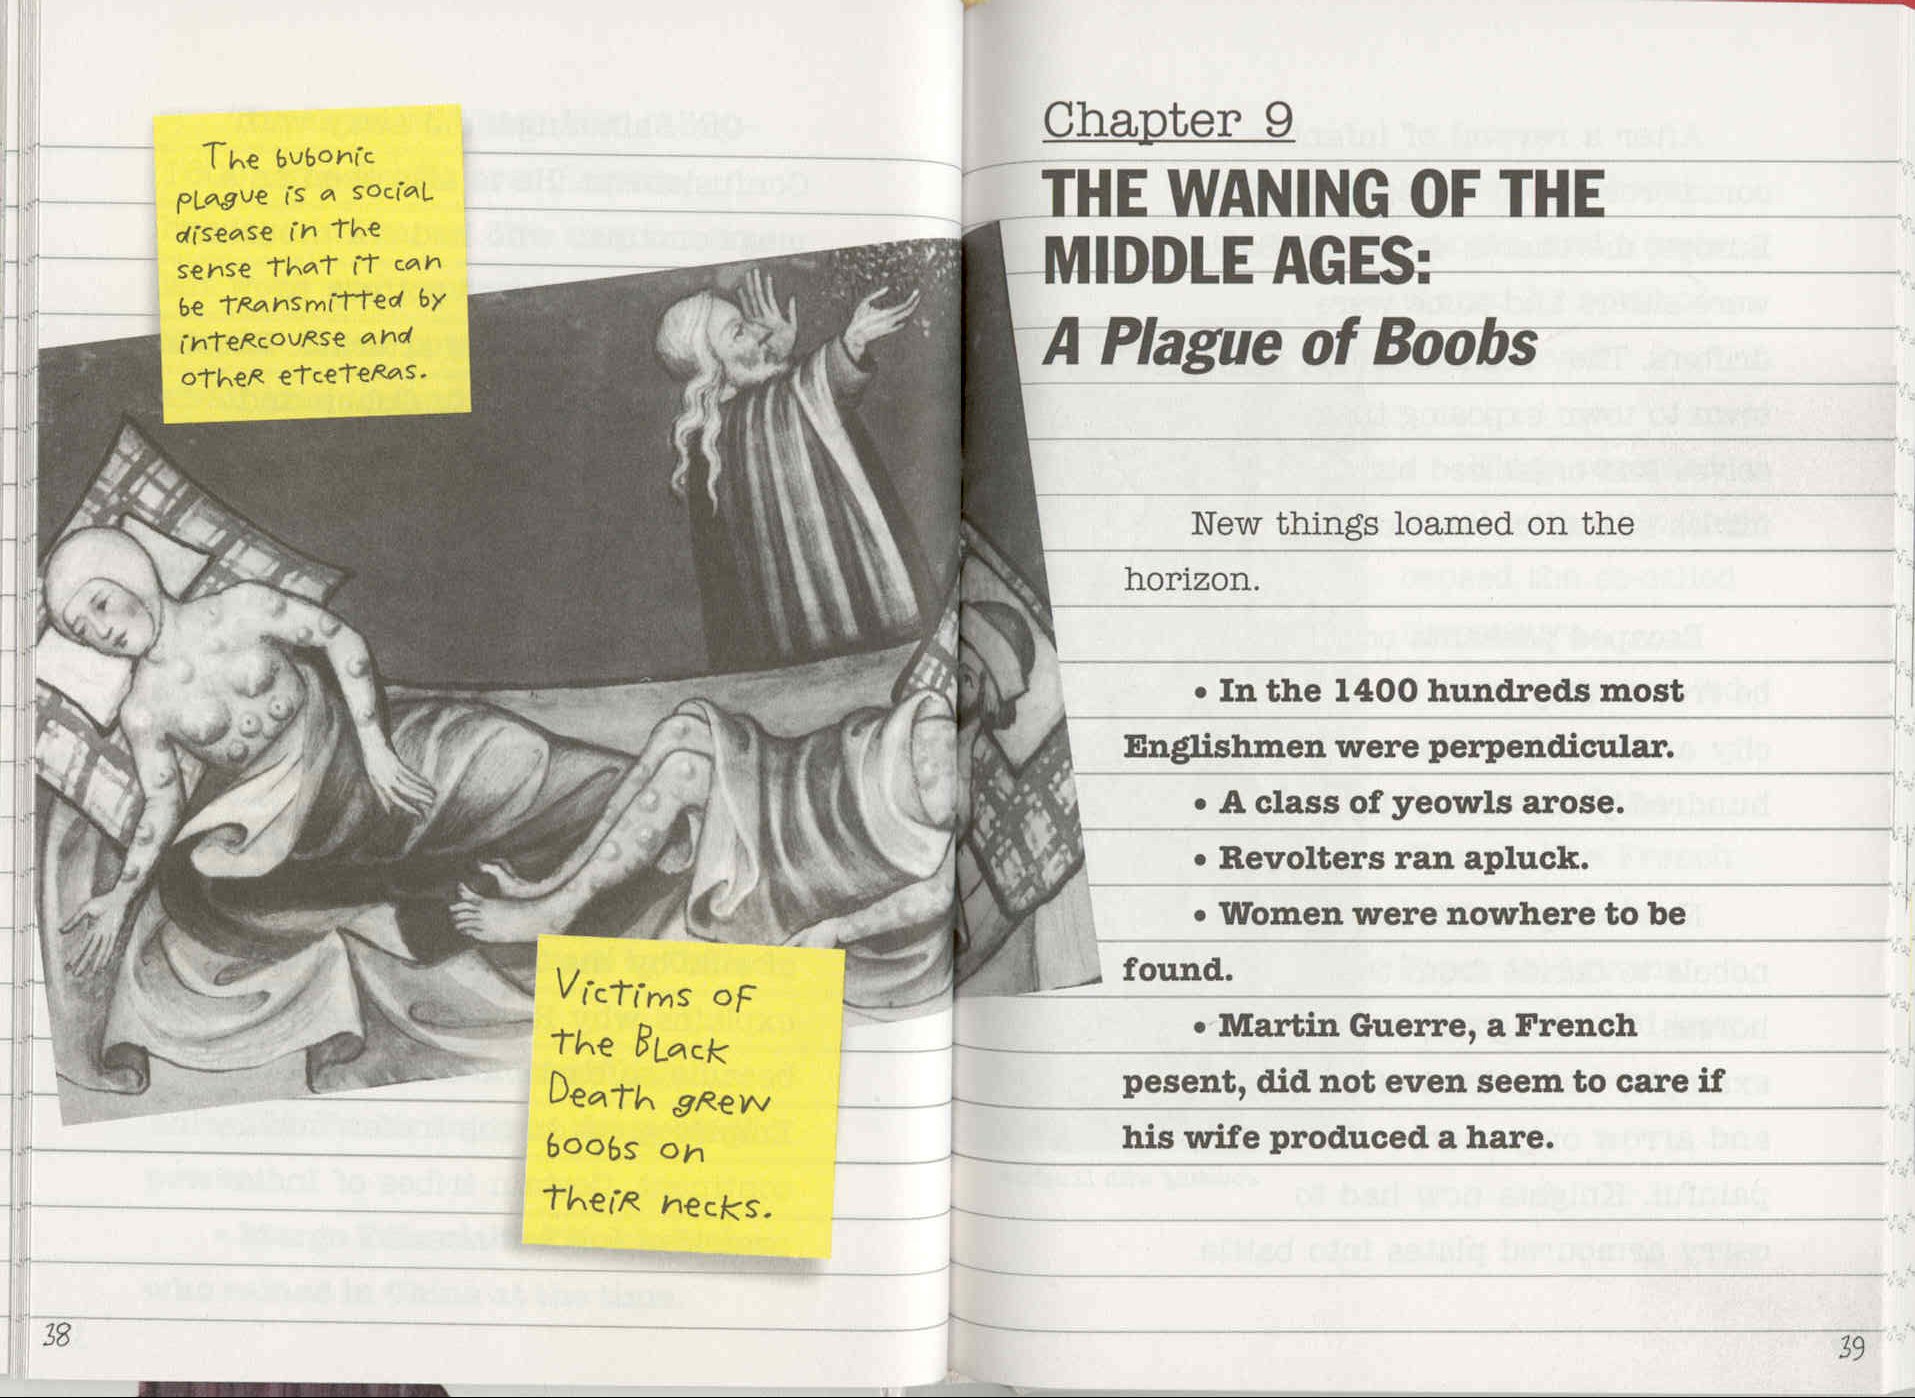 The bubonic
plague is a social
disease in the
sense that it can
be transmitted by
intercourse and
other etceteras.
Victims of
the Black
Death grew
boobs on
their necks.
38
Chapter 9
THE WANING OF THE
MIDDLE AGES:
A Plague of Boobs
New things loamed on the
horizon.
• In the 1400 hundreds most
Englishmen were perpendicular.
• A class of yeowls arose.
• Revolters ran apluck.
• Women were nowhere to be
found.
• Martin Guerre, a French
pesent, did not even seem to care if
his wife produced a hare.
39